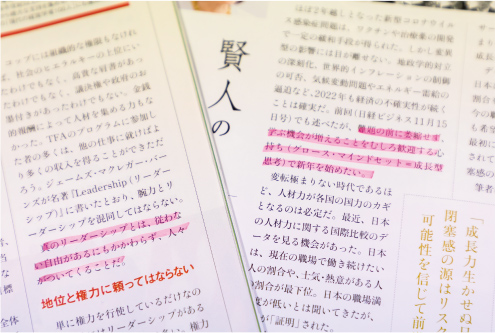 コップには組織的な権限もなけれ
ば、社会のヒエラルキーの上位にい
たわけでもなく、高貴な肩書があっ
たわけでもなく、議決権や政府のお
墨付きがあったわけでもない。金銭
的報酬によって人材を集める力もな
かった。TFAのプログラムに参加し
た若の多くは、他の仕事に就けばよ
り多くの収入を得ることができただ
ろう。ジェームズ・マクレガー・バー
ンズが名著『Leadership（リーダー
シップ）』に書いたとおり、腕力とリ
ーダーシップを混同してはならない。
真のリーダーシップとは、従わな
い自由があるにもかかわらず、人々
がついてくることだ。
地位と権力に頼ってはならない
単に権力を行使しているだけなの
賢人の
ほぼ2年越しとなった新型コロナウイル
ス感染症問題は、ワクチンや治療薬の開発
で一定の緩和手段が得られた。しかし変異
型の影響には目が離せない。地政学的対立
の深刻化、世界的インフレーションの制御
の可否、気候変動問題やエネルギー需給の
逼迫など、2022年も経済の不確実性が続く
ことは確実だ。前回（日経ビジネス11月15
日号）でも述べたが、難題の前に萎縮せず、
学ぶ機会が増えることをむしろ歓迎する心
持ち（グロース・マインドセット＝成長型
思考）で新年を始めたい。
変転極まりない時代であるほ
ど、人材力が各国の国力のカギ
となるのは必定だ。最近、日本
の人材力に関する国際比較のデ
ータを見る機会があった。日本
は、現在の職場で働き続けたい
人の割合や、士気・熱意がある人
の割合が最下位。日本の職場満
度が低いとは聞いてきたが、
が「証明」された。
「成長力生かせぬ日
閉塞感の源はリスク
可能性を信じて前